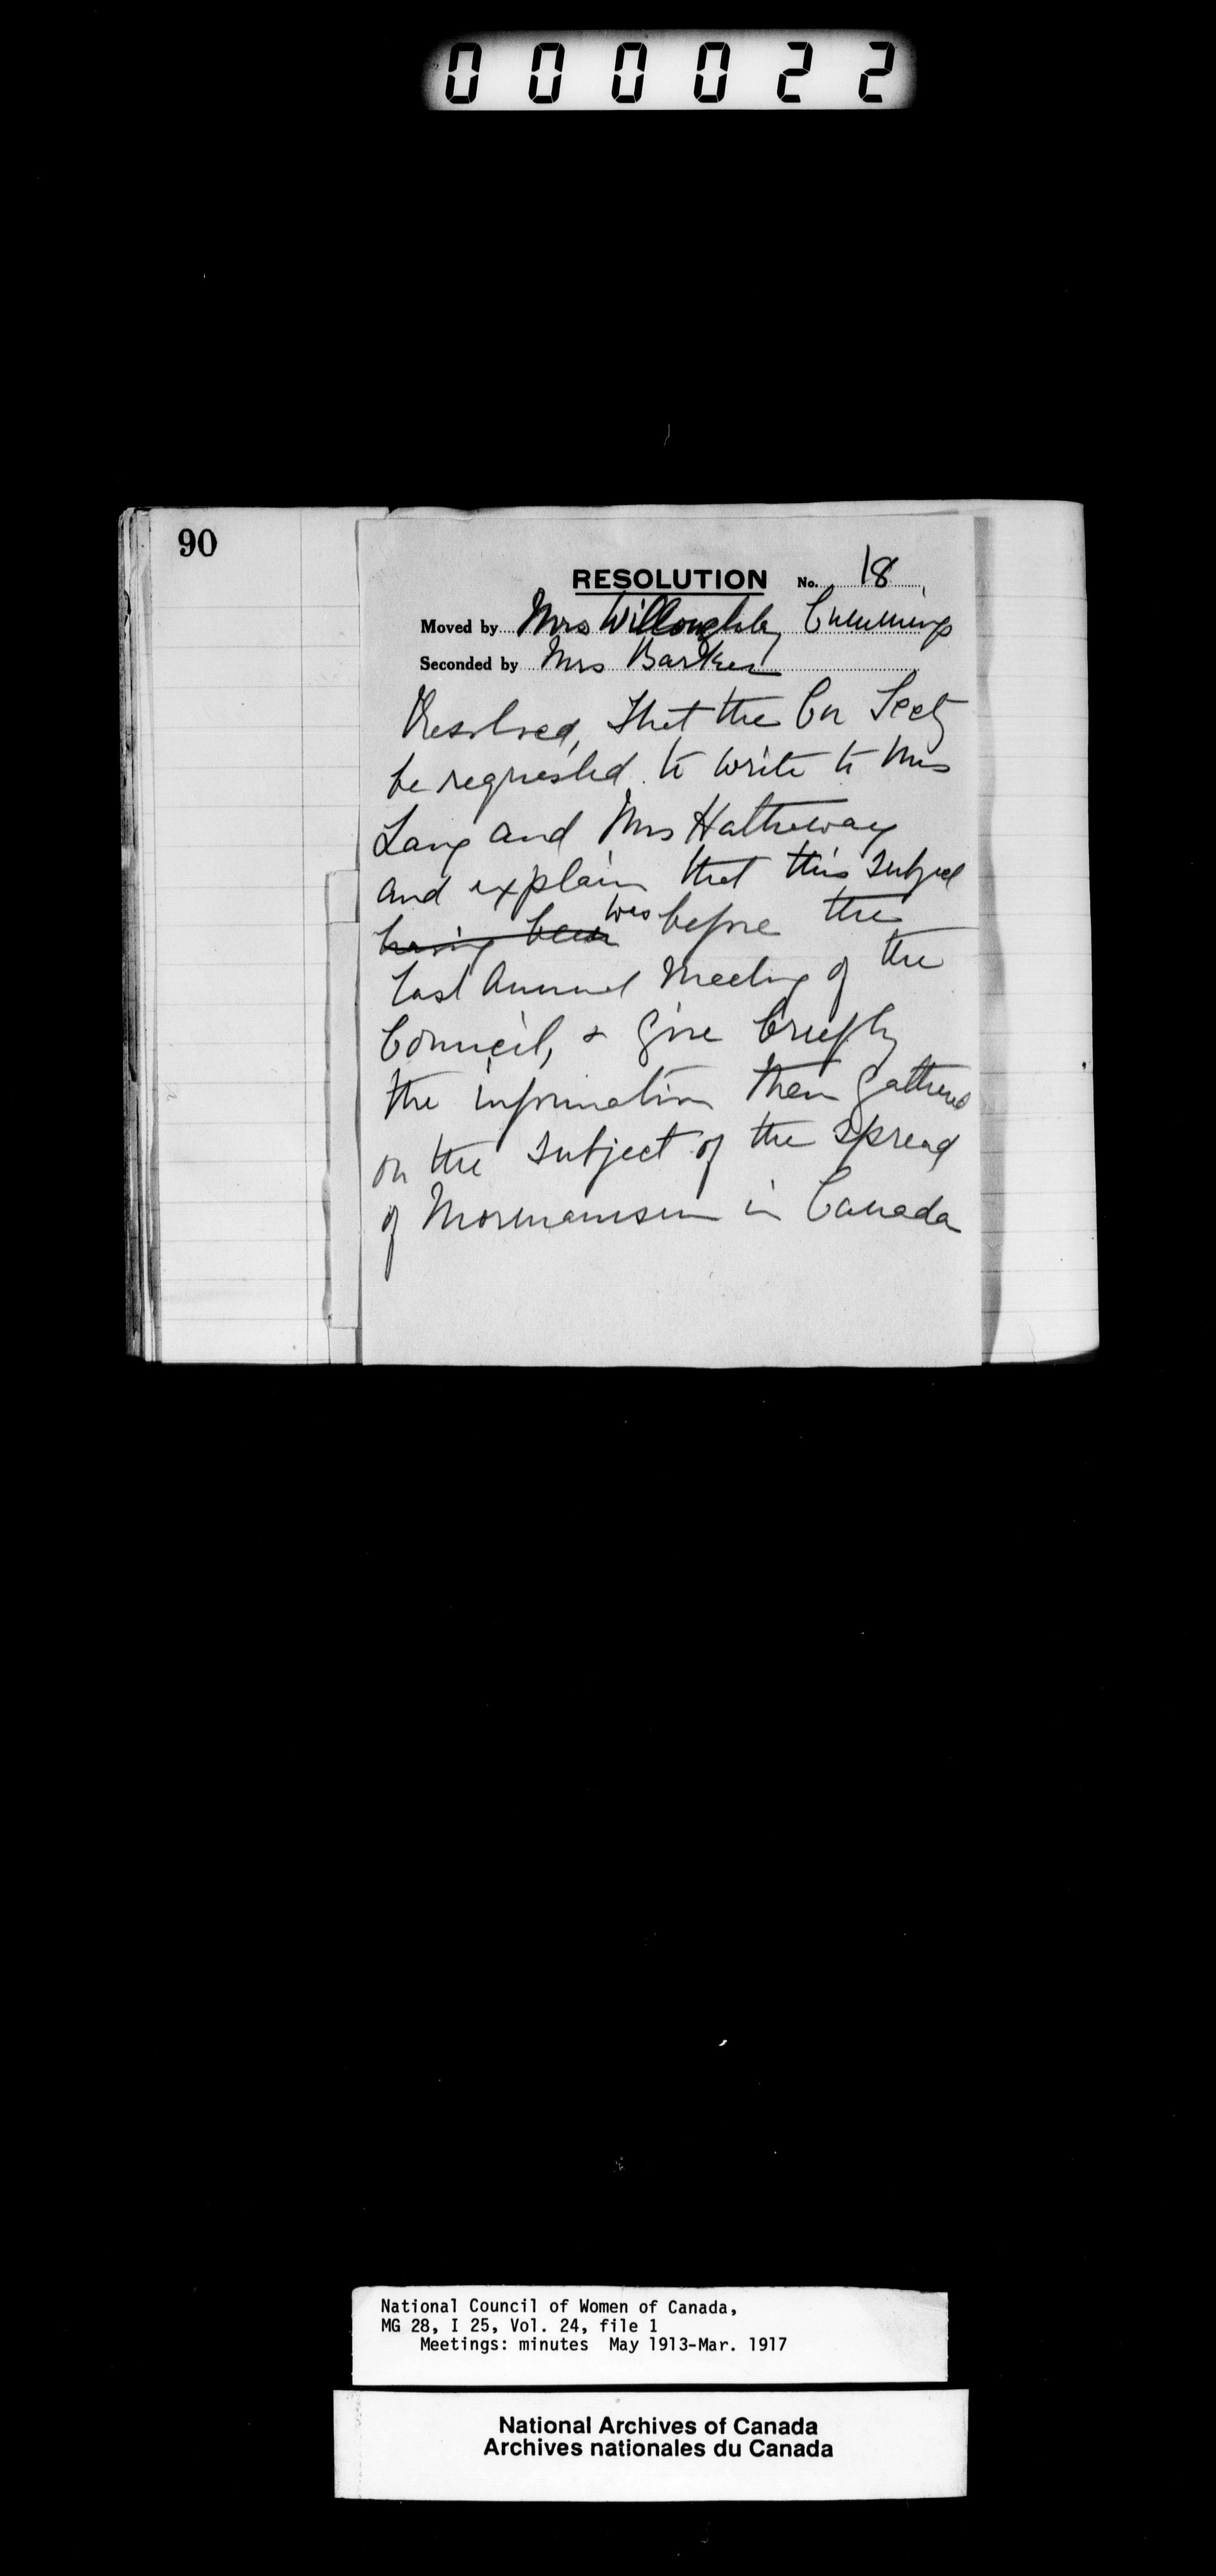 000022
90
RESOLUTION No. 18
Moved by Mrs Willoughby Cummings
Seconded by Mrs Barker
Resolved, That the Cor Secty
be requested to write to Mrs
Lang and Mrs Hatheway
and explain that this subject
having been was before the
last Annual Meeting of the
Council, & give briefly
the information then gathered
on the subject of the spread
of Mormanism in Canada
National Council of Women of Canada,
MG 28, I 25, Vol. 24, file 1
Meetings: minutes May 1913-Mar. 1917
National Archives of Canada
Archives nationales du Canada